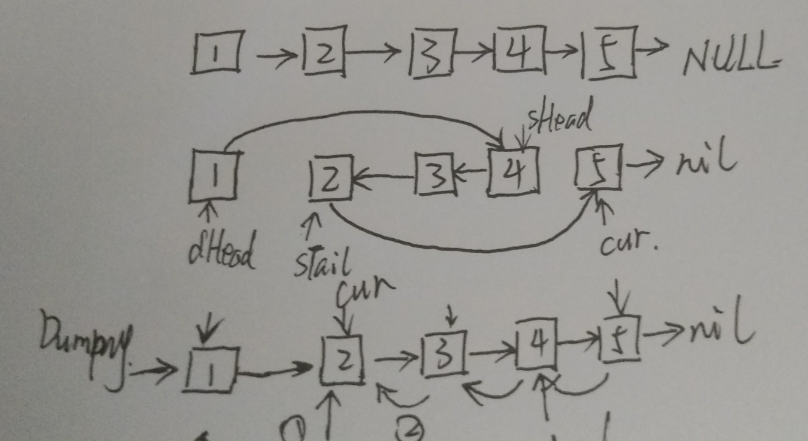 1 → 2 → 3 → 4 → 5 → NULL
sHead
1 2 ← 3 ← 4 5 → nil
dHead sTail cur.
cur
Dummy → 1 → 2 → 3 → 4 → 5 → nil
① ②